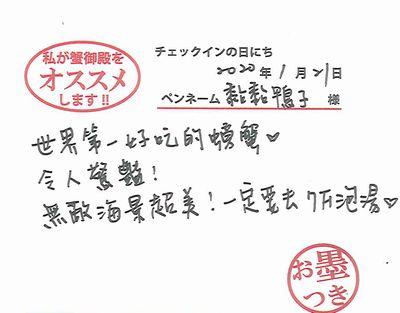 私が蟹御殿を
オススメ
します!!
チェックインの日にち
2020年1月21日
ペンネーム 黏黏鴨子 様
世界第一好吃的螃蟹♥
令人驚豔!
無敵海景超美!一定要去7F泡湯♥
お墨
つき